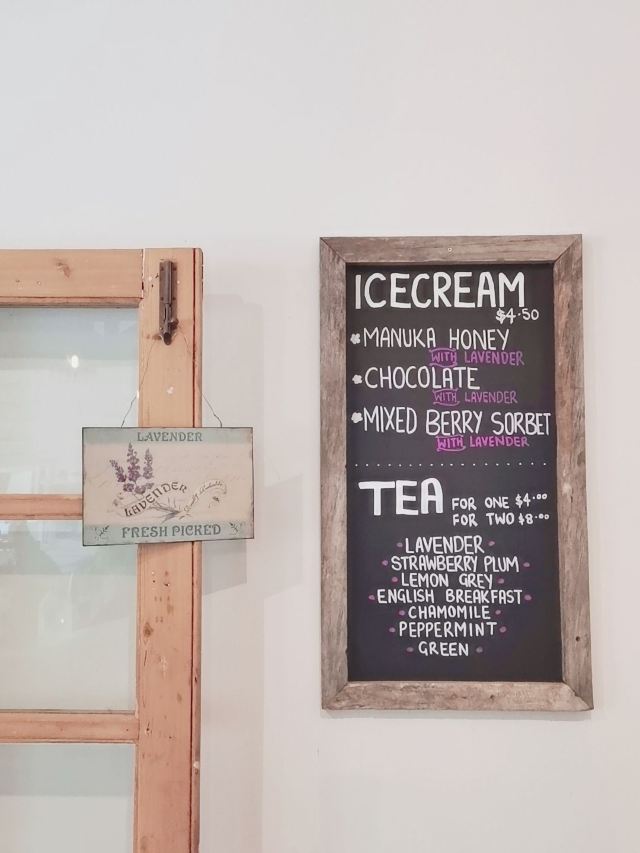 LAVENDER
LAVENDER
FRESH PICKED
ICECREAM
$4.50
MANUKA HONEY
WITH LAVENDER
CHOCOLATE
WITH LAVENDER
MIXED BERRY SORBET
WITH LAVENDER
TEA
FOR ONE $4.00
FOR TWO $8.00
LAVENDER
STRAWBERRY PLUM
LEMON GREY
ENGLISH BREAKFAST
CHAMOMILE
PEPPERMINT
GREEN